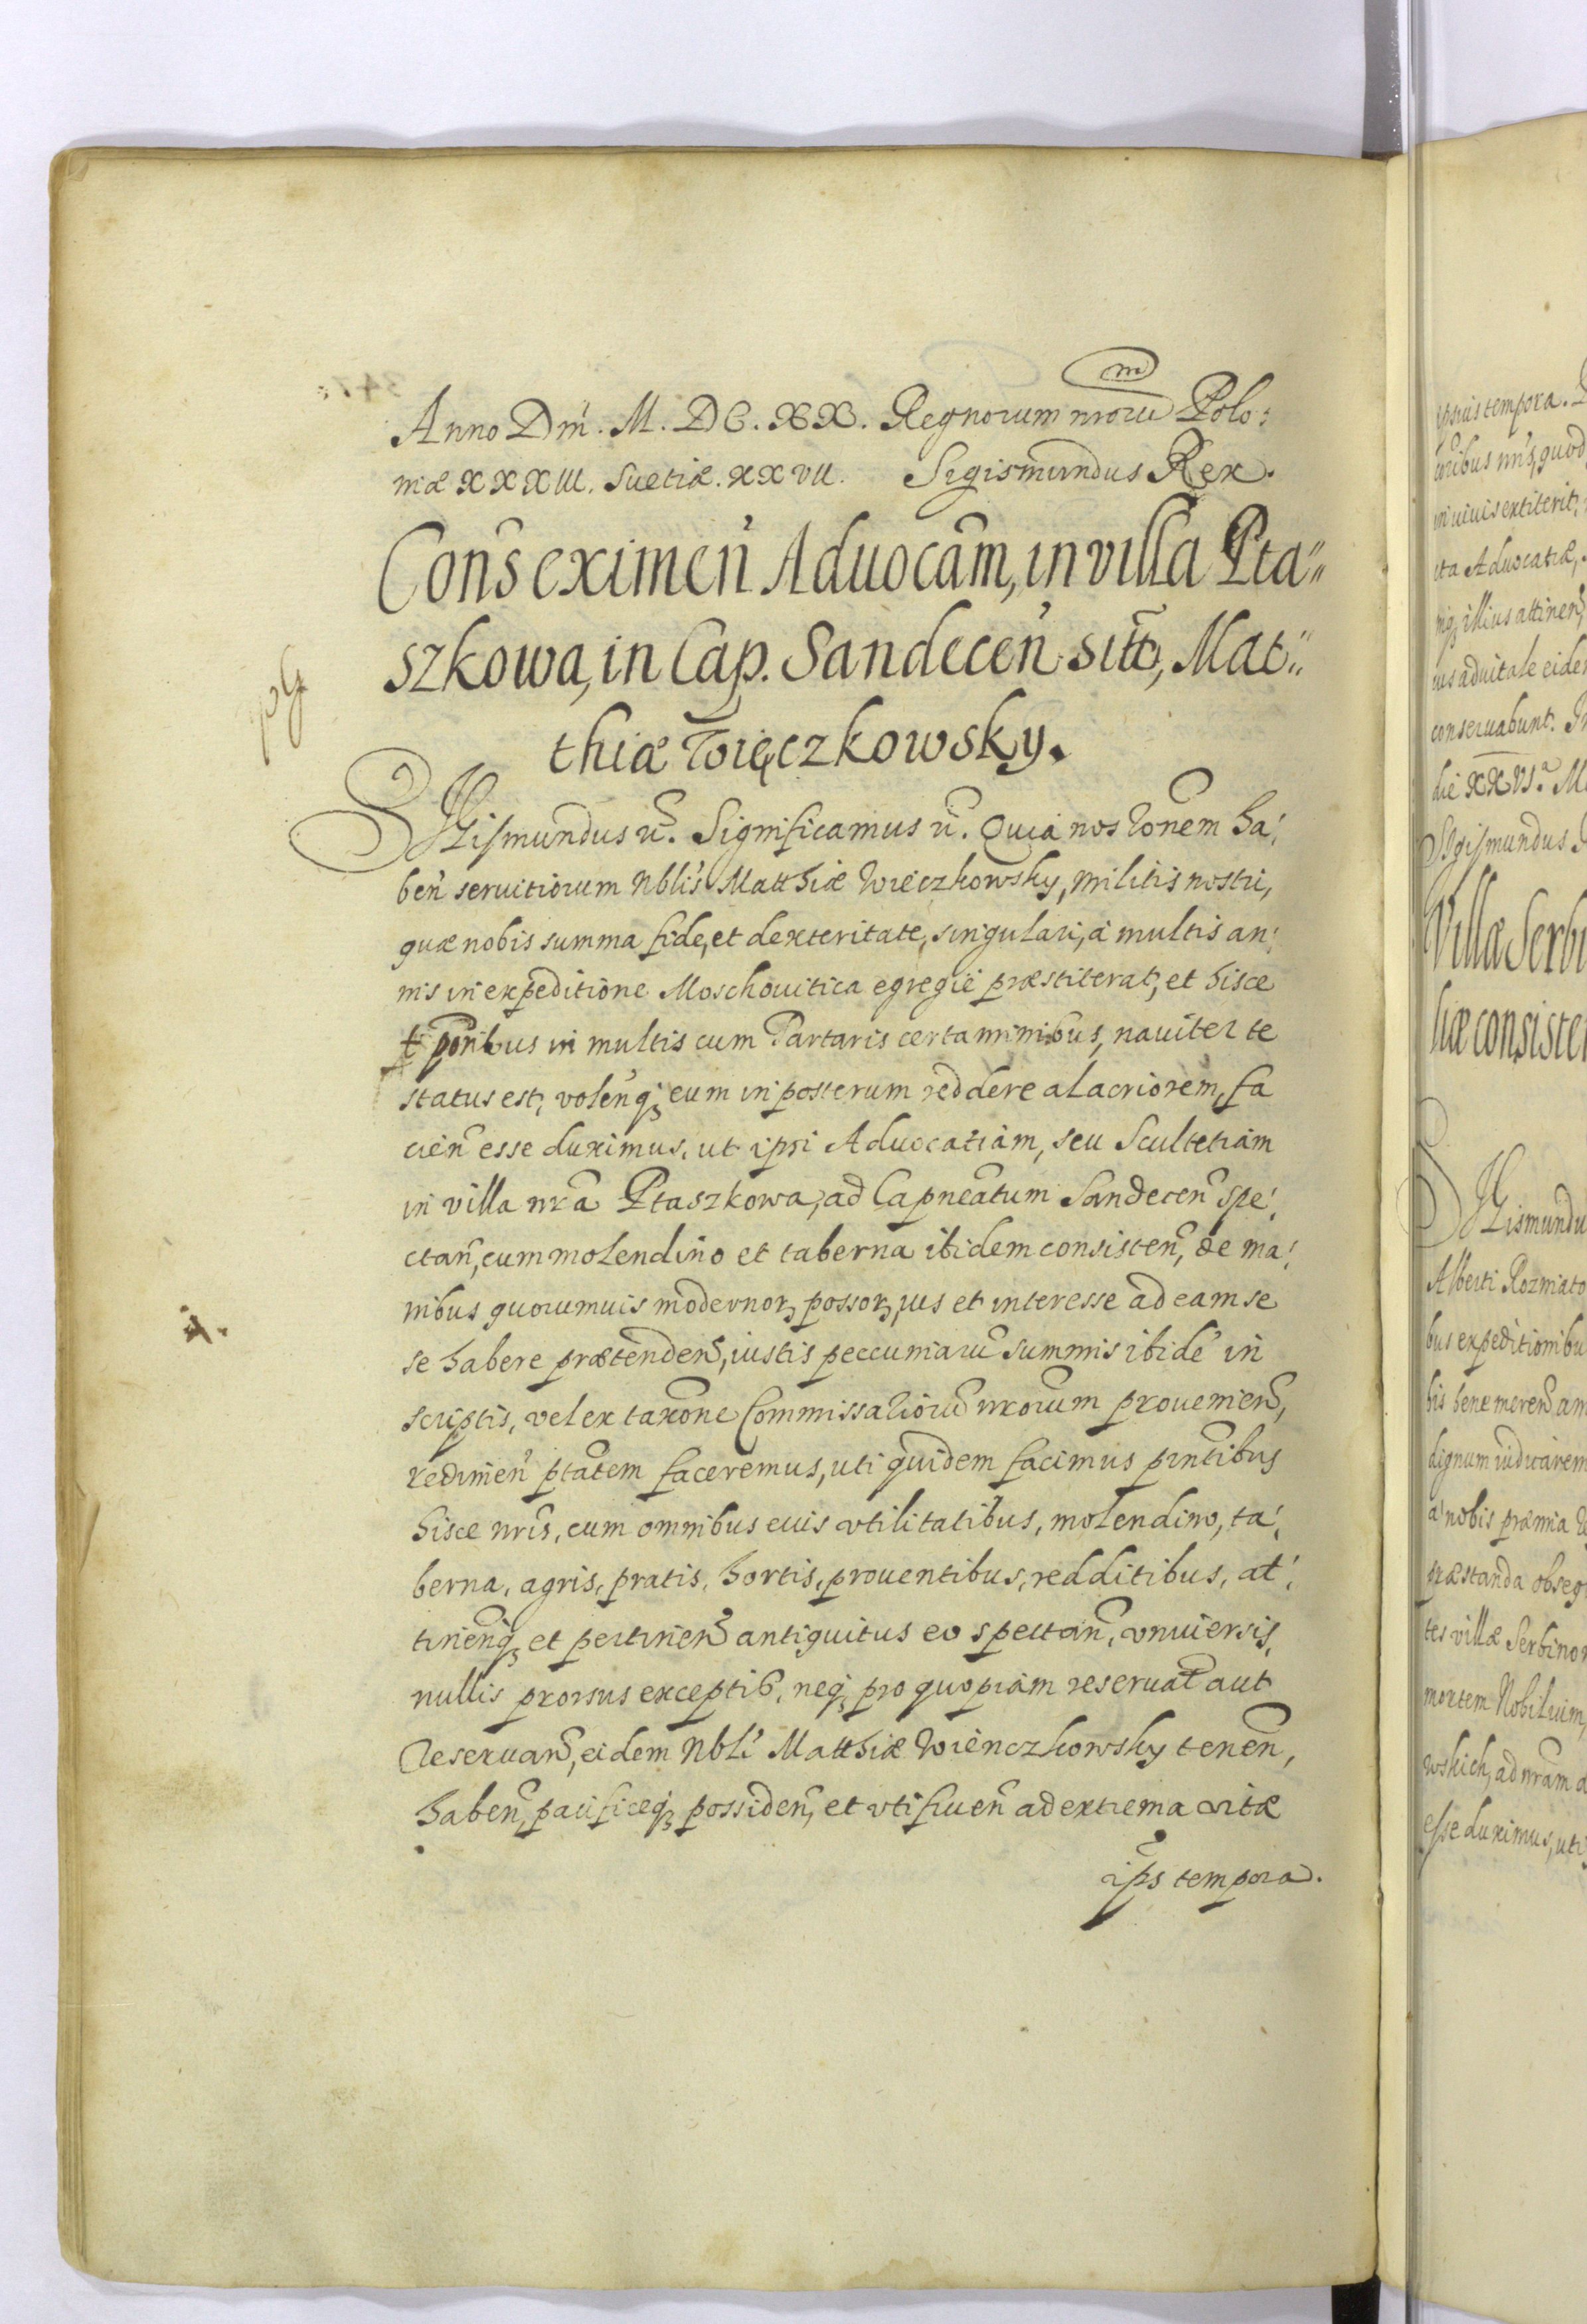 Anno Dni. M. DC. XX. Regnorum nrorũ Polo:
niæ XXXIII. Suetiæ. XXVII. Sigismundus Rex.
Cons eximen Aduocãm, in villa Pta"
szkowa, in Cap. Sandecen sitã, Mat"
thiæ Więczkowsky.
pG
SIgismundus ẽ. Significamus ẽ. Quia nos rõnem ha:
ben seruitiorum Nblis Matthiæ Więczkowsky, militis nostri,
quæ nobis summa fide, et dexteritate, singulari, à multis an:
nis in expeditione Moschouitica egregiè præstiterat, et hisce
tẽporibus in multis cum Tartaris certaminibus, nauiter te
status est, volenq; eum in posterum reddere alacriorem, fa
cien esse duximus, ut ipsi Aduocatiam, seu Scultetiam
in villa nrã Ptaszkowa, ad Capneatum Sandecen spe:
ctan, cum molendino et taberna ibidem consisten, de ma:
nibus quorumuis modernor, possor, ius et interesse ad eam se
se habere prætenden, iustis peccuniarũ summis ibidẽ in
scriptis, vel ex taxõne Commissariorũ nrorum prouenien,
redimen ptãtem faceremus, uti quidem facimus pñtibus
hisce nris, cum omnibus euis vtilitatibus, molendino, ta:
berna, agris, pratis, hortis, prouentibus, redditibus, at:
tinenq; et pertinen antiquitus eo spectan, vniuersis,
nullis prorsus exceptis, neq; pro quopiam reseruat aut
reseruan, eidem Nbli Matthiæ Wienczkowsky tenen,
haben, pacificeq; possiden, et vtifruen ad extrema vitæ
ips tempora.
ipsius tempora.
uribus nris, quod
in viuis extiterit,
ita Aduocatiæ,
mq; illius attinen,
ius aduitale eidem
conseruabunt. In
die XXVI.ª M
Sigismundus
Villæ Serbi
liæ consisten
SIgismundu
Alberti Rozniato
bus expeditionibu
bis bene meren am
dignum iudicarem
à nobis præmia
præstanda obseq
tes villæ Serbinow
mortem Nobilium,
wskich, ad nram
esse duximus, uti